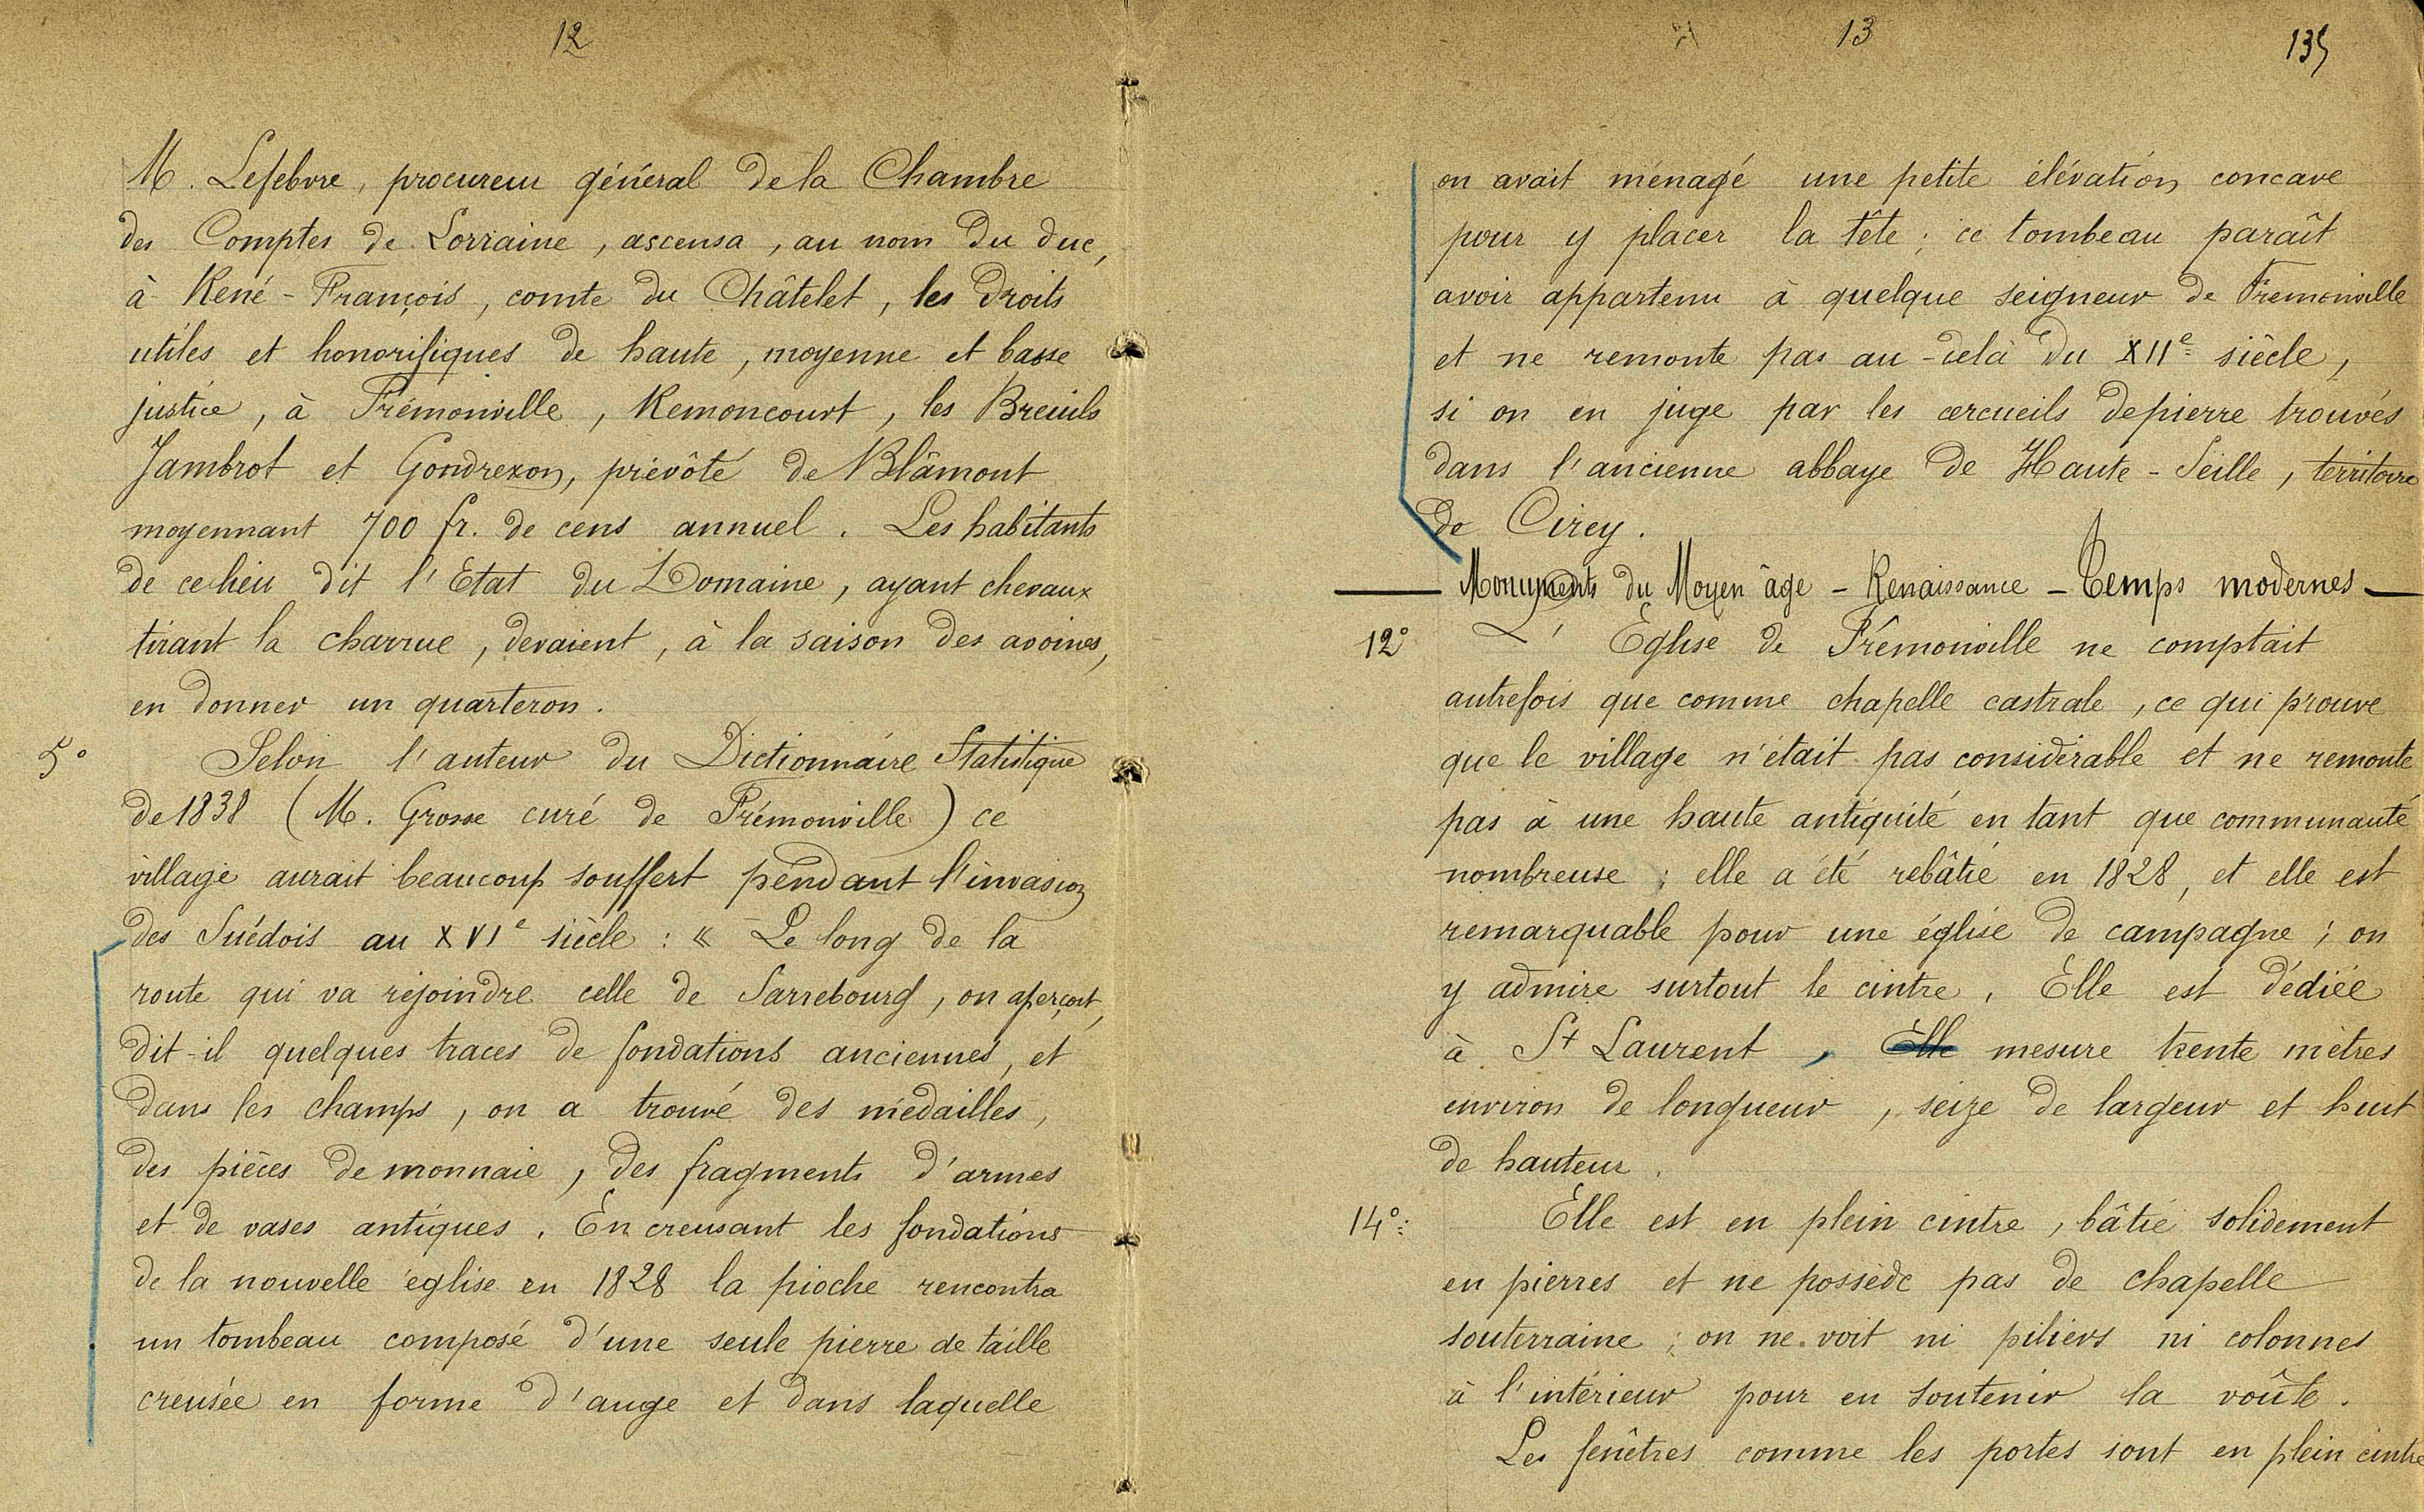 12
M. Lefebvre, procureur général de la Chambre
des Comptes de Lorraine, ascensa, au nom du duc,
à René-François, comte du Châtelet, les droits
utiles et honorifiques de haute, moyenne et basse
justice, à Frémonville, Remoncourt, les Breuils
Jambrot et Gondrexon, prévôté de Blâmont
moyennant 700 fr. de cens annuel. Les habitants
de ce lieu dit l'Etat du Domaine, ayant chevaux
tirant la charrue, devaient, à la saison des avoines,
en donner un quarteron.
5° Selon l'auteur du Dictionnaire Statistique
de 1838 (M. Grosse curé de Frémonville) ce
village aurait beaucoup souffert pendant l'invasion
des Suédois au XVIe siècle : « Le long de la
route qui va rejoindre celle de Sarrebourg, on aperçoit,
dit-il quelques traces de fondations anciennes, et
dans les champs, on a trouvé des médailles,
des pièces de monnaie, des fragments d'armes
et de vases antiques. En creusant les fondations
de la nouvelle église en 1828 la pioche rencontra
un tombeau composé d'une seule pierre de taille
creusée en forme d'auge et dans laquelle
13
135
on avait ménagé une petite élévation concave
pour y placer la tête ; ce tombeau paraît
avoir appartenu à quelque seigneur de Frémonville
et ne remonte pas au-delà du XIIe siècle,
si on en juge par les cercueils de pierre trouvés
dans l'ancienne abbaye de Haute-Seille, territoire
de Cirey.
— Monuments du Moyen âge - Renaissance - Temps modernes —
12° L'Eglise de Frémonville ne comptait
autrefois que comme chapelle castrale, ce qui prouve
que le village n'était pas considérable et ne remonte
pas à une haute antiquité en tant que communauté
nombreuse ; elle a été rebâtie en 1828, et elle est
remarquable pour une église de campagne ; on
y admire surtout le cintre. Elle est dédiée
à St Laurent, Elle mesure trente mètres
environ de longueur, seize de largeur et huit
de hauteur.
14°: Elle est en plein cintre, bâtie solidement
en pierres et ne possède pas de chapelle
souterraine ; on ne voit ni piliers ni colonnes
à l'intérieur pour en soutenir la voûte.
Les fenêtres comme les portes sont en plein cintre